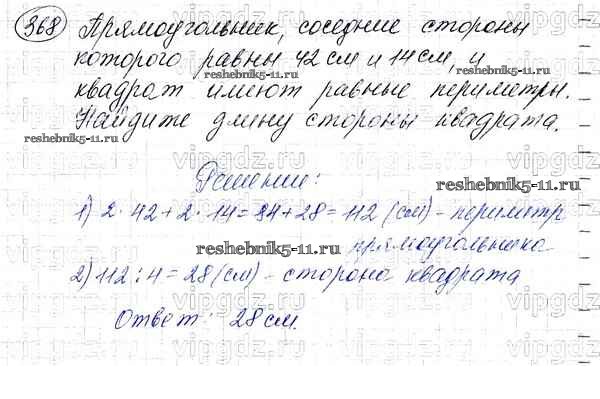 368 Прямоугольник, соседние стороны
которого равны 42 см и 14 см, и
квадрат имеют равные периметры.
Найдите длину стороны квадрата.
Решение:
1) 2·42+2·14=84+28=112 (см) - периметр
прямоугольника
2) 112:4=28 (см) - сторона квадрата
Ответ: 28 см.
reshebnik5-11.ru
reshebnik5-11.ru
reshebnik5-11.ru
reshebnik5-11.ru
vipgdz.ru